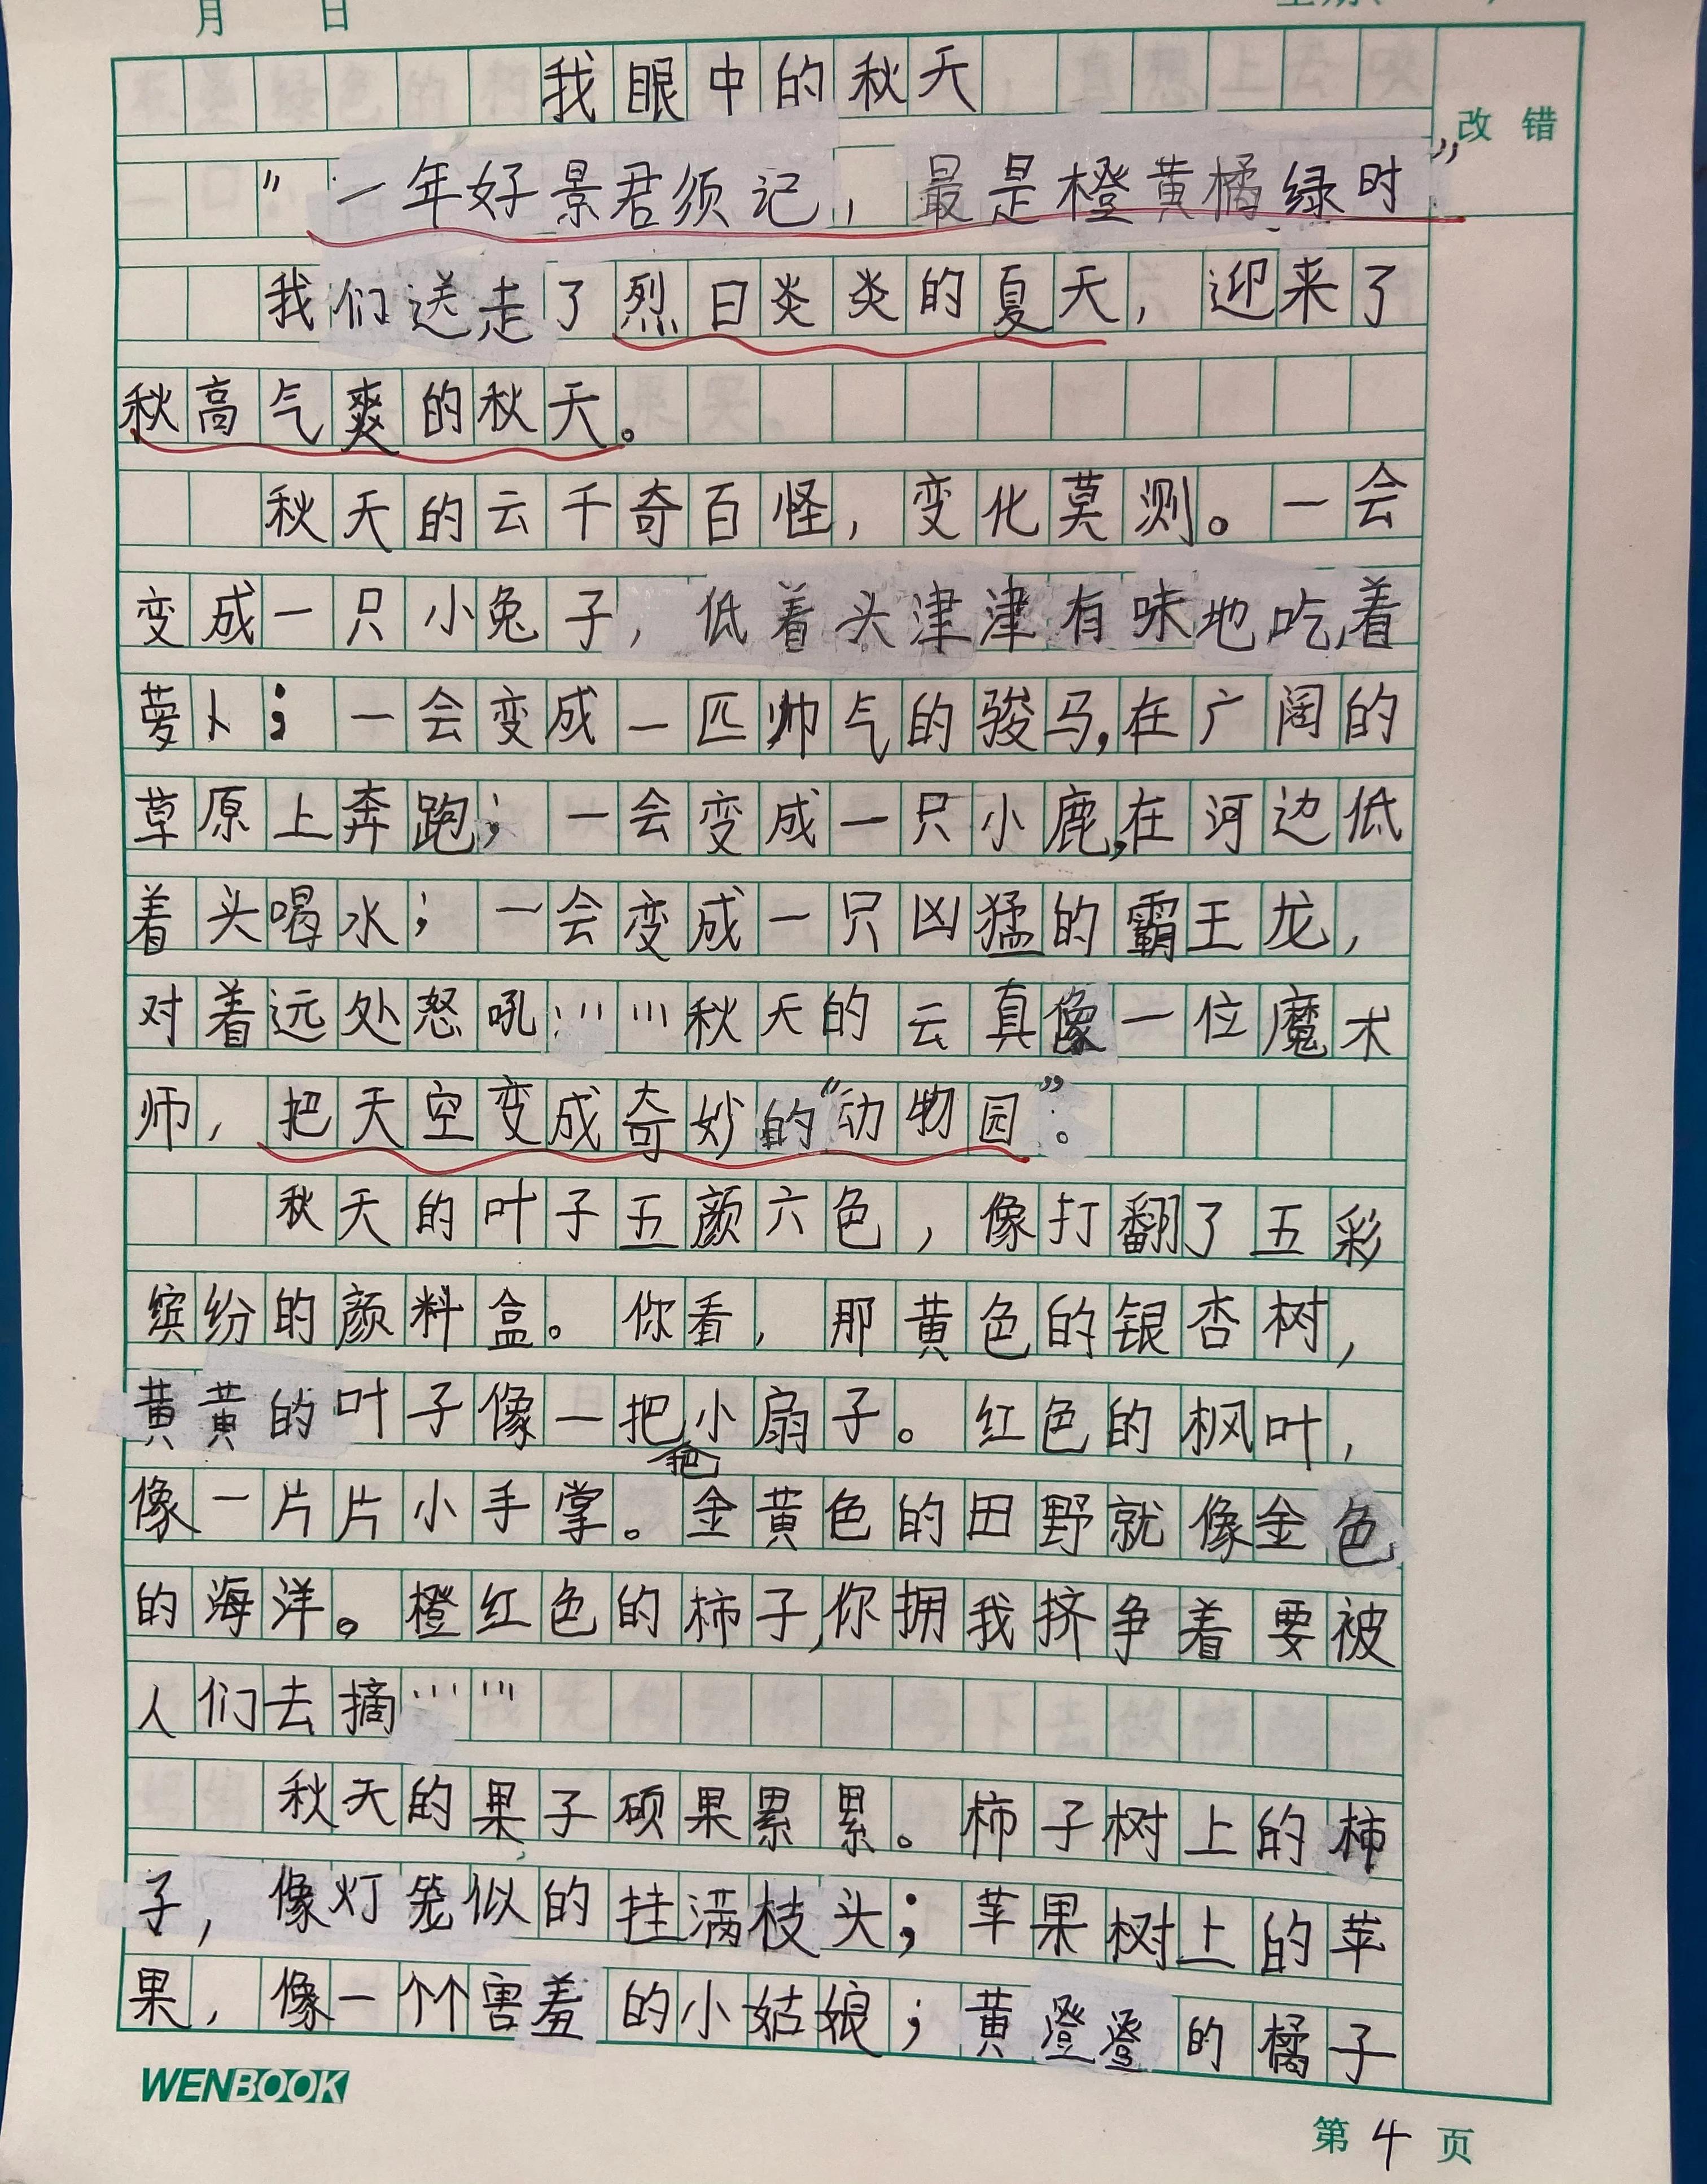 月 日
我眼中的秋天
改错
“一年好景君须记,最是橙黄橘绿时”
我们送走了烈日炎炎的夏天,迎来了
秋高气爽的秋天。
秋天的云千奇百怪,变化莫测。一会
变成一只小兔子,低着头津津有味地吃着
萝卜;一会变成一匹帅气的骏马,在广阔的
草原上奔跑;一会变成一只小鹿,在河边低
着头喝水;一会变成一只凶猛的霸王龙,
对着远处怒吼……秋天的云真像一位魔术
师,把天空变成奇妙的“动物园”。
秋天的叶子五颜六色,像打翻了五彩
缤纷的颜料盒。你看,那黄色的银杏树,
黄黄的叶子像一把把小扇子。红色的枫叶,
像一片片小手掌。金黄色的田野就像金色
的海洋。橙红色的柿子,你拥我挤争着要被
人们去摘……
秋天的果子硕果累累。柿子树上的柿
子,像灯笼似的挂满枝头;苹果树上的苹
果,像一个个害羞的小姑娘;黄澄澄的橘子
WENBOOK
第4页